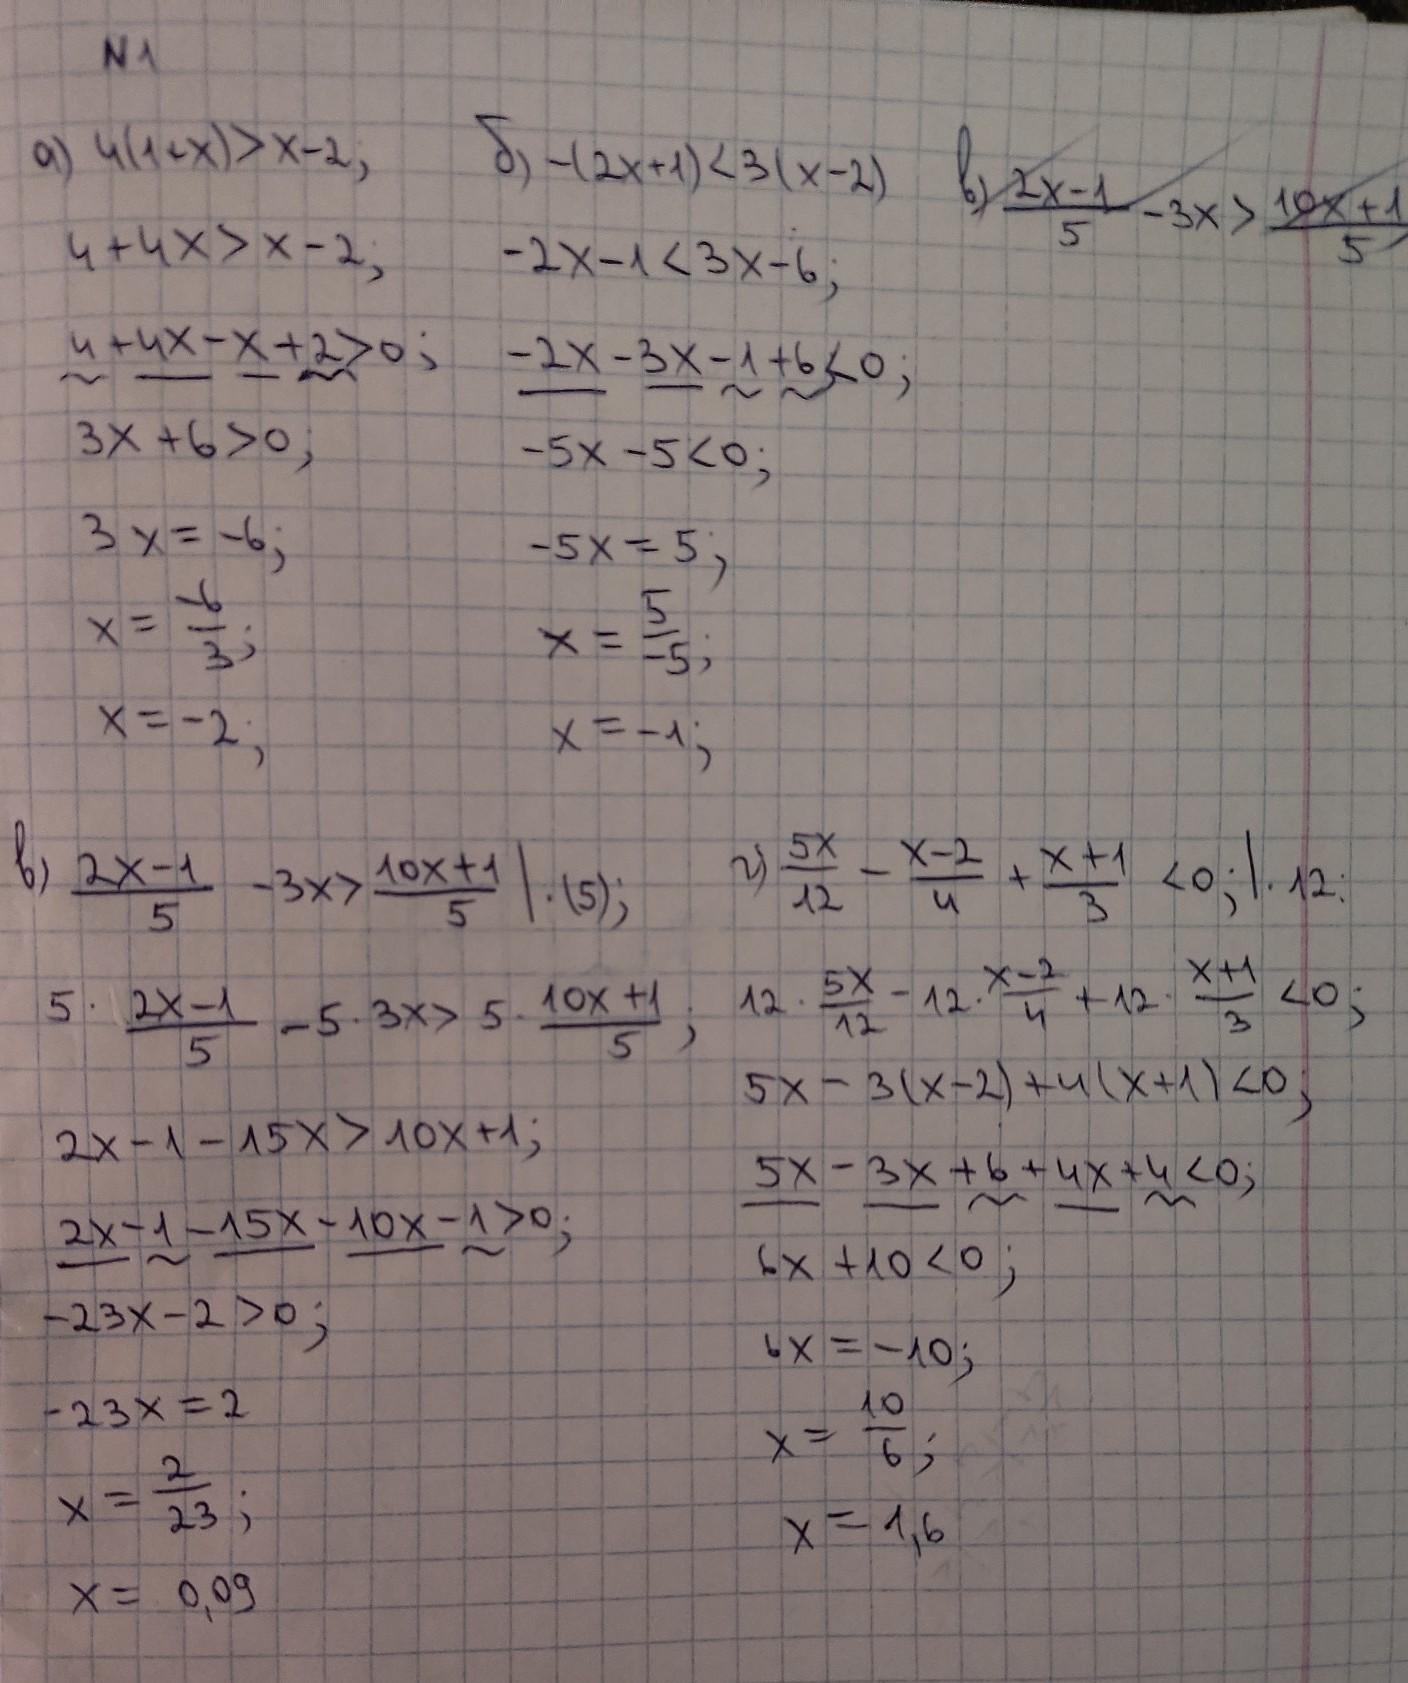 N1
а) 4(1+x)>x-2;
4+4x>x-2;
4+4x-x+2>0;
3x+6>0;
3x=-6;
x=-6/3;
x=-2;
б) -(2x+1)<3(x-2)
-2x-1<3x-6;
-2x-3x-1+6<0;
-5x-5<0;
-5x=5;
x=5/-5;
x=-1;
в) (2x-1)/5 -3x> (10x+1)/5
в) (2x-1)/5 -3x> (10x+1)/5 |·(5);
5·(2x-1)/5 -5·3x> 5·(10x+1)/5;
2x-1-15x>10x+1;
2x-1-15x-10x-1>0;
-23x-2>0;
-23x=2
x=2/23;
x= 0,09
г) 5x/12 - (x-2)/4 + (x+1)/3 <0; |·12:
12·5x/12 -12·(x-2)/4 +12·(x+1)/3 <0;
5x-3(x-2)+4(x+1)<0;
5x-3x+6+4x+4<0;
6x+10<0;
6x=-10;
x=10/6;
x=1,6